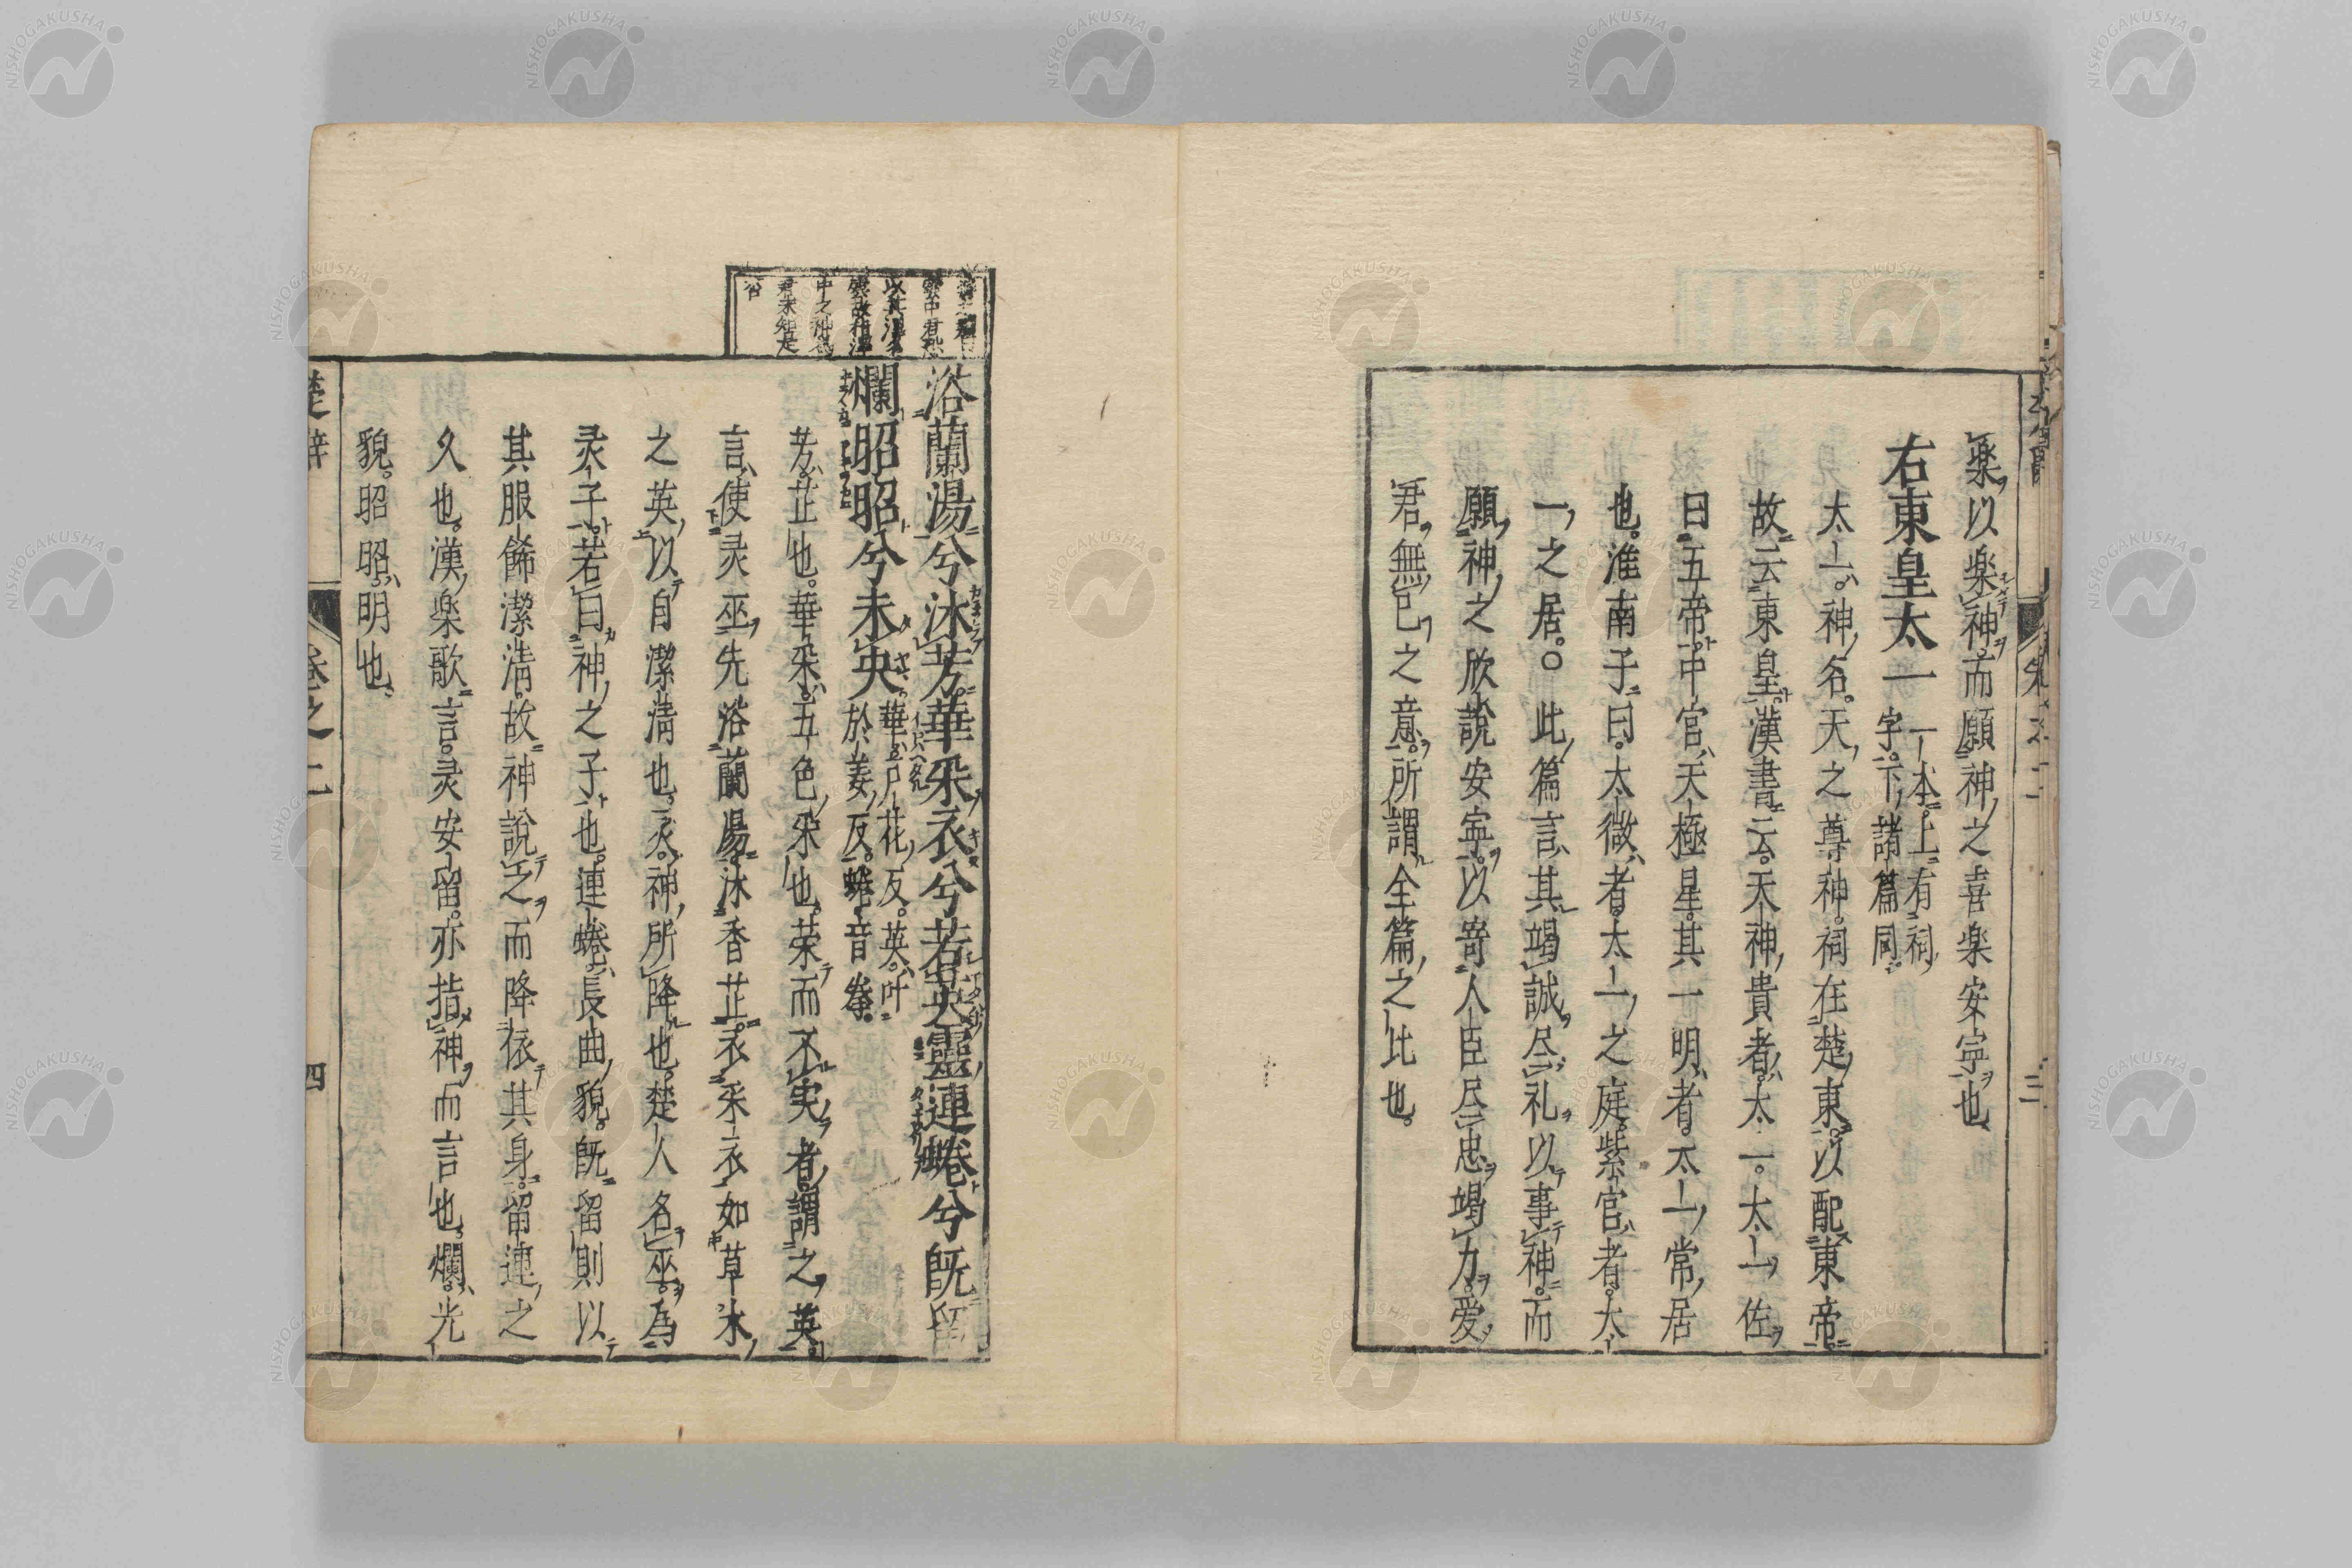 樂以楽神而願神之喜楽安寧也
右東皇太一
一本上有祠
字下諸篇同
太一神名天之尊神祠在楚東以配東帝
故云東皇漢書云天神貴者太一太一佐
曰五帝中官天極星其一明者太一常居
也淮南子曰太微者太一之庭紫宮者太
一之居○此篇言其竭誠尽礼以事神而
願神之欣說安寧以寄人臣尽忠竭力愛
君無已之意所謂全篇之比也
浴蘭湯兮沐芳華采衣兮若英靈連蜷兮既留
爛昭昭兮未央
華戸花反英叶
於姜反蜷音拳
芳芷也華采五色采也荣而不実者謂之英
言使灵巫先浴蘭湯沐香芷衣采衣如草木
之英以自潔清也灵神所降也楚人名巫為
灵子若曰神之子也連蜷長曲貌既留則以
其服餙潔清故神說之而降依其身留連之
久也漢楽歌言灵安留亦指神而言也爛光
貌昭昭明也
楚辞
卷之二
四